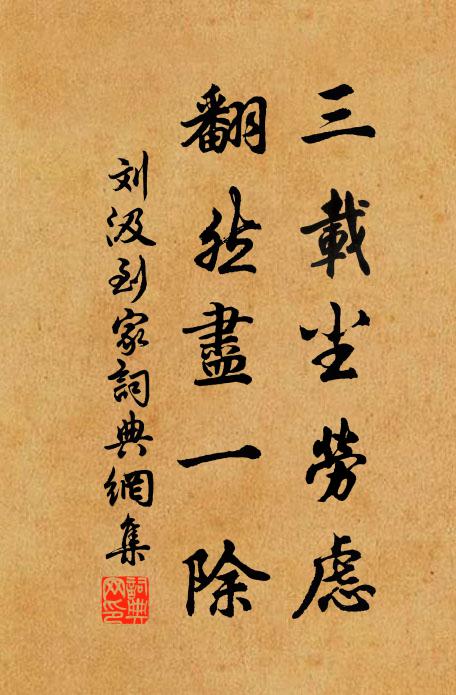 三載尘勞慮
翻然盡一除
刘汲到家詞典網集
詞典网印